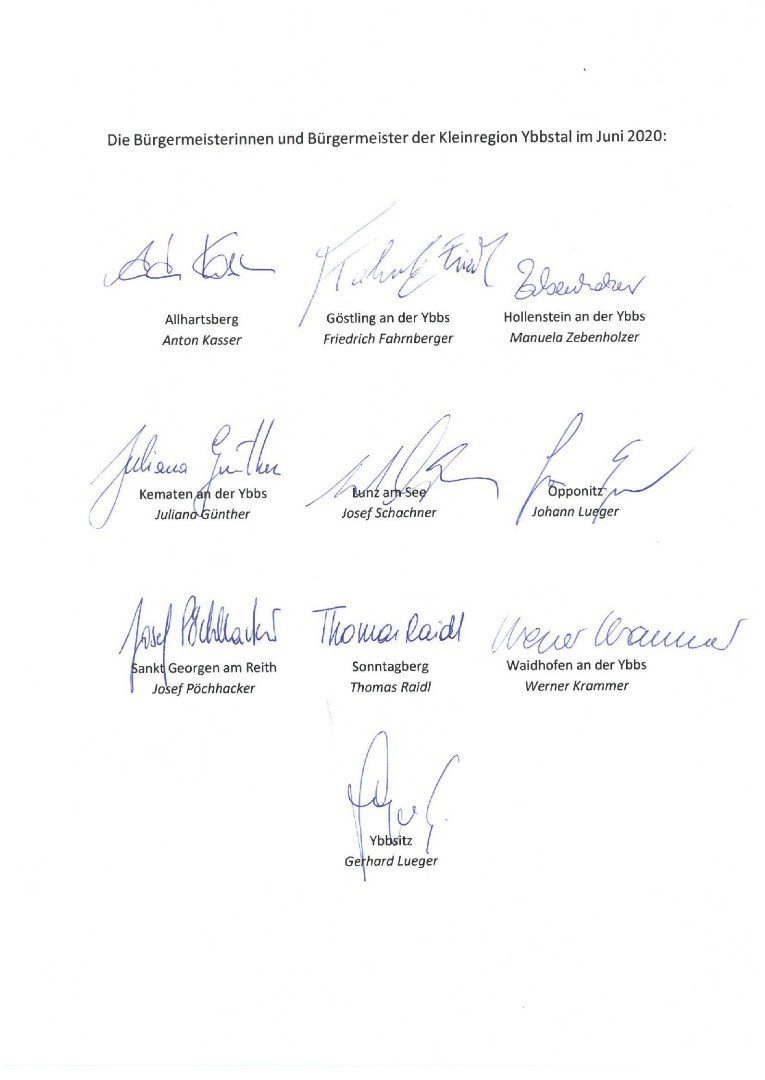 Die Bürgermeisterinnen und Bürgermeister der Kleinregion Ybbstal im Juni 2020:
Allhartsberg
Anton Kasser
Fahrnb Friedl
Göstling an der Ybbs
Friedrich Fahrnberger
Zebenholzer
Hollenstein an der Ybbs
Manuela Zebenholzer
Juliana Günther
Kematen an der Ybbs
Juliana Günther
Lunz am See
Josef Schachner
Opponitz
Johann Lueger
Josef Pöchhacker
Sankt Georgen am Reith
Josef Pöchhacker
Thomas Raidl
Sonntagberg
Thomas Raidl
Werner Krammer
Waidhofen an der Ybbs
Werner Krammer
Ybbsitz
Gerhard Lueger